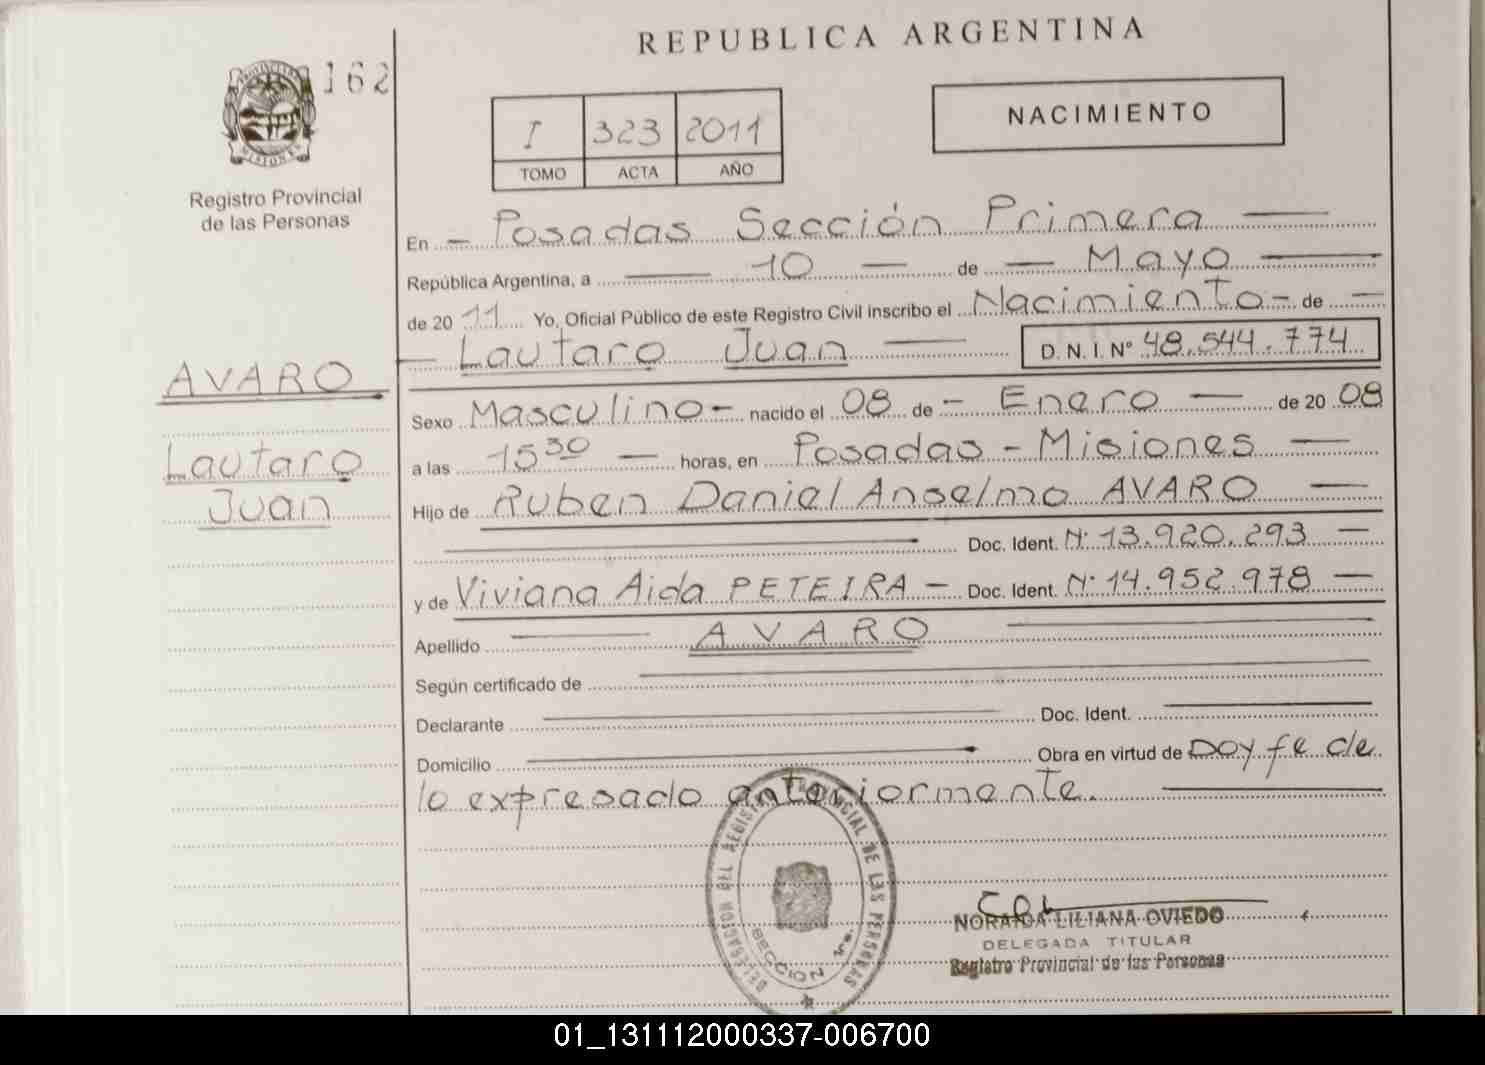 REPUBLICA ARGENTINA
162
PROVINCIA
MISIONES
Registro Provincial
de las Personas
I 323 2011
TOMO ACTA AÑO
NACIMIENTO
En Posadas Sección Primera
República Argentina, a 10 de Mayo
de 2011 Yo, Oficial Público de este Registro Civil inscribo el Nacimiento de
Lautaro Juan D. N. I. Nº 48.544.774
AVARO
Lautaro
Juan
Sexo Masculino nacido el 08 de Enero de 2008
a las 15 30 horas, en Posadas - Misiones
Hijo de Ruben Daniel Anselmo AVARO
Doc. Ident. Nº 13.920.293
y de Viviana Aida PETEIRA Doc. Ident. Nº 14.952.978
Apellido AVARO
Según certificado de
Declarante Doc. Ident.
Domicilio Obra en virtud de Doy fe de
lo expresado anteriormente.
DELEGACION DEL REGISTRO PROVINCIAL DE LAS PERSONAS
SECCION 1ra.
NORAIDA LILIANA OVIEDO
DELEGADA TITULAR
Registro Provincial de las Personas
01_131112000337-006700